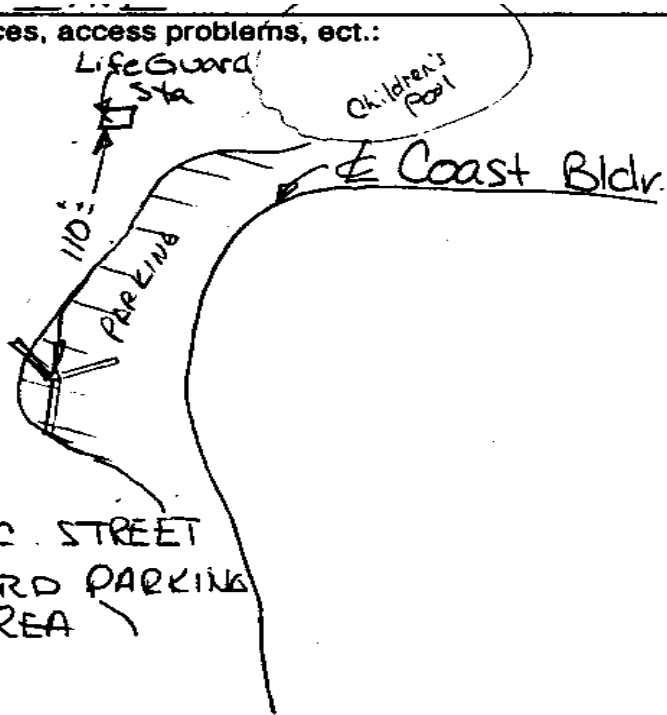 ces, access problems, ect.:
LifeGuard
Sta
Children's
Pool
℄ Coast Bldv.
110'±
PARKING
C. STREET
RD PARKING
REA